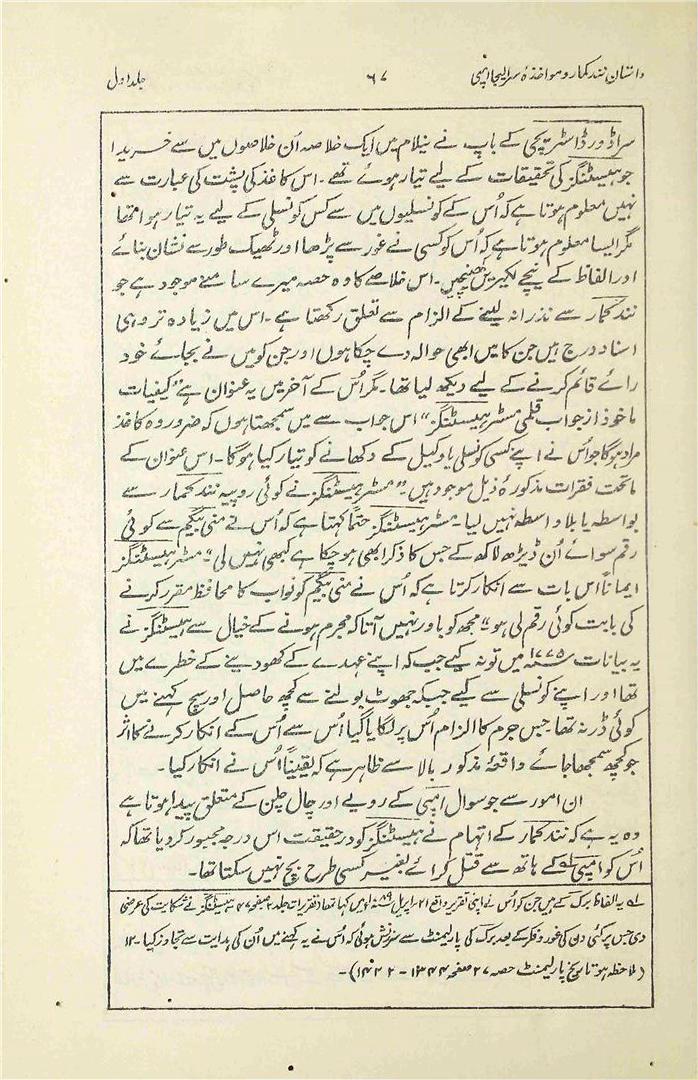 داستان نند کمار و مواخذۂ سر ایلیجا امپی ۶۷ جلد اول
سر اڈورڈ اسٹریچی کے باپ نے نیلام میں ایک خلاصہ اُن خلاصوں میں سے خریدا
جو ہیسٹنگز کی تحقیقات کے لیے تیار ہوئے تھے۔ اس کاغذ کی پشت کی عبارت سے
نہیں معلوم ہوتا ہے کہ اُس کے کونسلیوں میں سے کس کونسلی کے لیے یہ تیار ہوا تھا
مگر ایسا معلوم ہوتا ہے کہ اُس کو کسی نے غور سے پڑھا اور ٹھیک طور سے نشان بنائے
اور الفاظ کے نیچے لکیریں کھینچیں۔ اس خلاصے کا وہ حصہ میرے سامنے موجود ہے جو
نند کمار سے نذرانہ لینے کے الزام سے تعلق رکھتا ہے۔ اس میں زیادہ تر وہی
اسناد درج ہیں جن کا میں ابھی حوالہ دے چکا ہوں اور جن کو میں نے بجائے خود
رائے قائم کرنے کے لیے دیکھ لیا تھا۔ مگر اُس کے آخر میں یہ عنوان ہے "کیفیات
ماخوذ از جواب قلمی مسٹر ہیسٹنگز" اس جواب سے میں سمجھتا ہوں کہ ضرور وہ کاغذ
مراد ہوگا جو اُس نے اپنے کسی کونسلی یا وکیل کے دکھانے کو تیار کیا ہوگا۔ اس عنوان کے
ماتحت فقرات مذکورۂ ذیل موجود ہیں۔ "مسٹر ہیسٹنگز نے کوئی روپیہ نند کمار سے
بواسطہ یا بلا واسطہ نہیں لیا۔ مسٹر ہیسٹنگز حتماً کہتا ہے کہ اُس نے منی بیگم سے کوئی
رقم سوائے اُن ڈیڑھ لاکھ کے جس کا ذکر ابھی ہو چکا ہے کبھی نہیں لی"۔ مسٹر ہیسٹنگز
ایماناً اس بات سے انکار کرتا ہے کہ اُس نے منی بیگم کو نواب کا محافظ مقرر کرنے
کی بابت کوئی رقم لی ہو" مجھ کو باور نہیں آتا کہ مجرم ہونے کے خیال سے ہیسٹنگز نے
یہ بیانات ۱۷۷۵ء میں تو نہ کیے جب کہ اپنے عہدے کے کھو دینے کے خطرے میں
تھا اور اپنے کونسلی سے کیے جبکہ جھوٹ بولنے سے کچھ حاصل اور سچ کہنے میں
کوئی ڈر نہ تھا۔ جس جرم کا الزام اُس پر لگایا گیا اُس سے اُس کے انکار کرنے کا اثر
جو کچھ سمجھا جائے واقعۂ مذکور بالا سے ظاہر ہے کہ یقیناً اُس نے انکار کیا۔
ان امور سے جو سوال امپی کے رویے اور چال چلن کے متعلق پیدا ہوتا ہے
وہ یہ ہے کہ نند کمار کے اتہام نے ہیسٹنگز کو در حقیقت اس درجہ مجبور کر دیا تھا کہ
اُس کو امپی کے ہاتھ سے قتل کرائے بغیر کسی طرح بچ نہیں سکتا تھا۔
لہ یہ الفاظ برک کے ہیں جن کو اُس نے اپنی تقریر واقع ۲۱۔ اپریل ۱۷۸۹ء میں کہا تھا (تقریرات جلد ۲ صفحہ ۴۷) ہیسٹنگز نے شکایت کی عرضی
دی جس پر کئی دن کی غور و فکر کے بعد برک کی پارلیمنٹ سے سرزنش ہوئی کہ اُس نے یہ کہنے میں اُن کی ہدایت سے تجاوز کیا۔ ۱۲
(ملاحظہ ہو تاریخ پارلیمنٹ حصہ ۲۷ صفحہ ۱۳۴۴ - ۱۴۲۲)۔